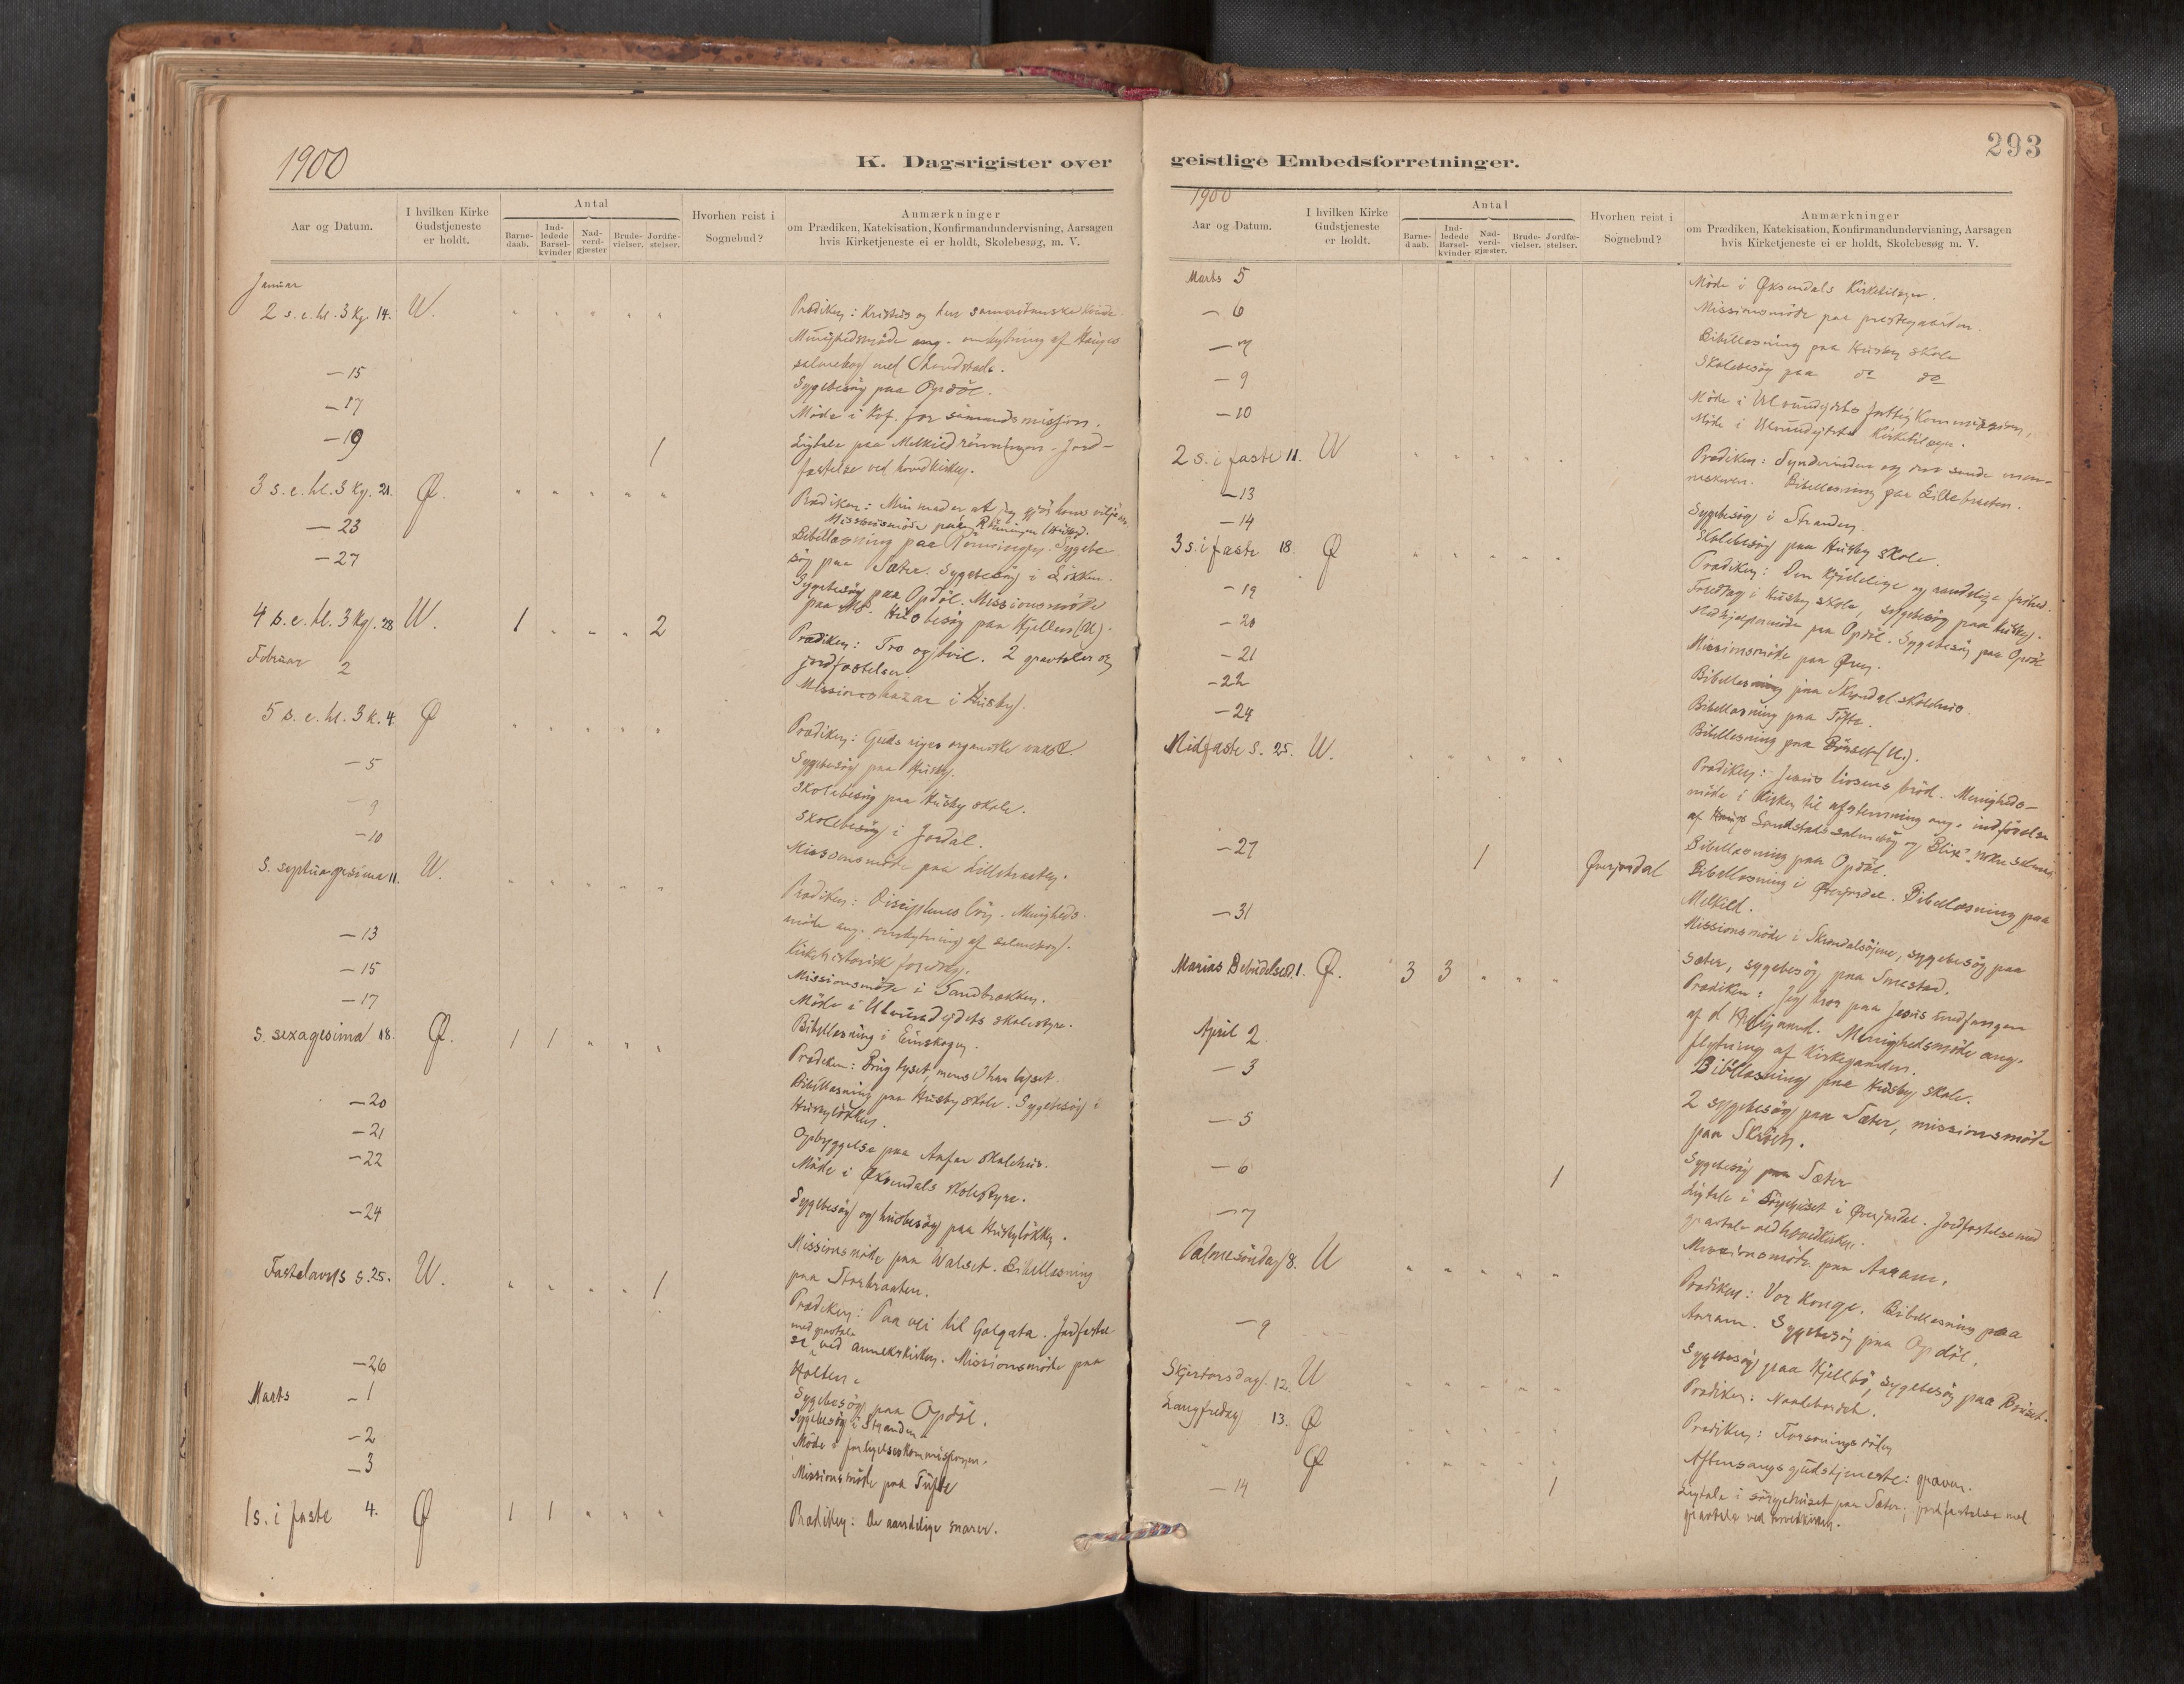 1900
K. Dagsrigister over
Aar og Datum.
I hvilken Kirke Gudstjeneste er holdt.
Antal
Barne-daab.
Ind-ledede Barsel-kvinder
Nad-verd-gjæster
Brude-vielser.
Jordfæ-stelser.
Hvorhen reist i Sognebud?
Anmærkninger
om Prædiken, Katekisation, Konfirmandundervisning, Aarsagen
hvis Kirketjeneste ei er holdt, Skolebesøg, m. V.
Januar
2 s. e. hl. 3 kg. 14. U. " " " " " Prædiken: Kristus og hin samaritanske kvinde.
Menighedsmøde ang. ombytning af Hauges
salmebog med Landstads.
— 15 Sygebesøg paa Opdøl.
— 17 Møde i for sømandsmission.
— 19 1 Ligtale paa Melkild Jord-
fæstelse ved hovedkirken.
3 s. e. hl. 3 kg. 21. Ø. " " " " " Prædiken: Min mad er at jeg gjør hans vilje
— 23 Missionsmøde paa Rønningen (Husby).
— 27 Bibellæsning paa Rønningen. Sygebe-
søg paa Sæter. Sygebesøg i Løkken.
Sygebesøg paa Opdøl. Missionsmøde
paa Mo. Husbesøg paa Hjellen (U).
4 s. e. hl. 3 kg. 28 U. 1 " " " 2 Prædiken: Tro og tvil. 2 gravtaler og
jordfæstelser.
Februar 2 Missionsbazar i Husby.
5 s. e. hl. 3 k. 4. Ø " " " " " Prædiken: Guds riges organiske vækst
— 5 Sygebesøg paa Husby.
— 9 Skolebesøg paa Husby skole.
— 10 Skolebesøg i Jordal.
Missionsmøde paa Lillebraaten.
S. septuagesima 11. U. " " " " " Prædiken: Disciplenes løn. Menigheds-
møde ang. ombytning af salmebog.
— 13 Kirkehistorisk foredrag.
— 15 Missionsmøde i Sandbrekken.
— 17 Møde i Ulvundejdets skolestyre.
Bibellæsning i Einskogen.
S. sexagesima 18. Ø. 1 1 " " " Prædiken: Brug lyset, mens I har lyset.
— 20 Bibellæsning paa Husby skole. Sygebesøg i
Husbyløkken.
— 21 Opbyggelse paa Anfar skolehus.
— 22 Møde i Øksendals skolestyre.
— 24 Sygebesøg og husbesøg paa Husbyløkken.
Missionsmøde paa Walset. Bibellæsning
paa Storbraaten.
Fastelavns s. 25. U. " " " " 1 Prædiken: Paa vei til Golgata. Jordfæstel-
se med gravtale ved annekskirken. Missionsmøde paa
Holten.
— 26 Sygebesøg paa Opdøl.
Marts — 1 Sygebesøg i Stranden
— 2 Møde i forligelseskommissionen.
— 3 Missionsmøde paa Tufte
1 s. i faste 4. Ø 1 1 " " " Prædiken: De aandelige snarer.
293
geistlige Embedsforretninger.
1900
Aar og Datum.
I hvilken Kirke Gudstjeneste er holdt.
Antal
Barne-daab.
Ind-ledede Barsel-kvinder
Nad-verd-gjæster.
Brude-vielser.
Jordfæ-stelser.
Hvorhen reist i Sognebud?
Anmærkninger
om Prædiken, Katekisation, Konfirmandundervisning, Aarsagen
hvis Kirketjeneste ei er holdt, Skolebesøg m. V.
Marts 5 Møde i Øksendals Kirketilsyn.
— 6 Missionsmøde paa prestegaarden.
— 7 Bibellæsning paa Husby skole
— 9 Skolebesøg paa do do
— 10 Møde i Ulvundejdets fattigkommission,
Møde i Ulvundejdets Kirketilsyn.
2 s. i faste 11. U " " " " " Prædiken: Synderinden og den sande men-
neskeven. Bibellæsning paa Lillebraaten.
— 13 Sygebesøg i Stranden.
— 14 Skolebesøg paa Husby skole.
3 s. i faste 18. Ø " " " " " Prædiken: Den kjødelige og aandelige frihed.
— 19 Foredrag i Husby skole, sygebesøg paa Husby.
— 20 Medhjælpermøde paa Opdøl. Sygebesøg paa Opdøl
— 21 Missionsmøde paa Øren.
— 22 Bibellæsning paa Skrondal skolehus.
— 24 Bibellæsning paa Tøfte.
Bibellæsning paa Brøset (U.).
Midfaste S. 25. U. " " " " " Prædiken: Jesus livsens brød. Menigheds-
møde i kirken til afstemning ang. indførelse
af Landstads salmebog og Blix' nokre salmar.
— 27 1 Øverjordal Bibellæsning paa Opdøl.
Bibellæsning i Øverjordal. Bibellæsning paa
Melkild.
— 31 Missionsmøde i Skrondalsøjene, sygebesøg paa
Sæter, sygebesøg paa Smestad.
Marias Bebudelsesd. 1. Ø. 3 3 " " " Prædiken: Jeg tror paa Jesus undfangen
af d. Helligaand. Menighedsmøde ang.
flytning af Kirkegaarden.
April 2 Bibellæsning paa Husby skole.
— 3 2 sygebesøg paa Sæter, missionsmøde
paa Skrøen.
— 5 Sygebesøg paa Sæter
— 6 1 Ligtale i sørgehuset i Øverjordal. Jordfæstelse med
gravtale ved hovedkirken.
— 7 Missionsmøde paa Aaram.
Palmesøndag 8. U " " " " " Prædiken: Vor Konge. Bibellæsning paa
Aaram. Sygebesøg paa Opdøl.
— 9 Sygebesøg paa Hjellbø, sygebesøg paa Brøset.
Skjertorsdag. 12. U " " " " " Prædiken: Naadebordet.
Langfredag 13. Ø " " " " " Prædiken: Forsoningsdøden
" Ø " " " " " Aftensangsgudstjeneste: graven.
— 14 1 Ligtale i sørgehuset paa Sæter; jordfæstelse med
gravtale ved hovedkirken.